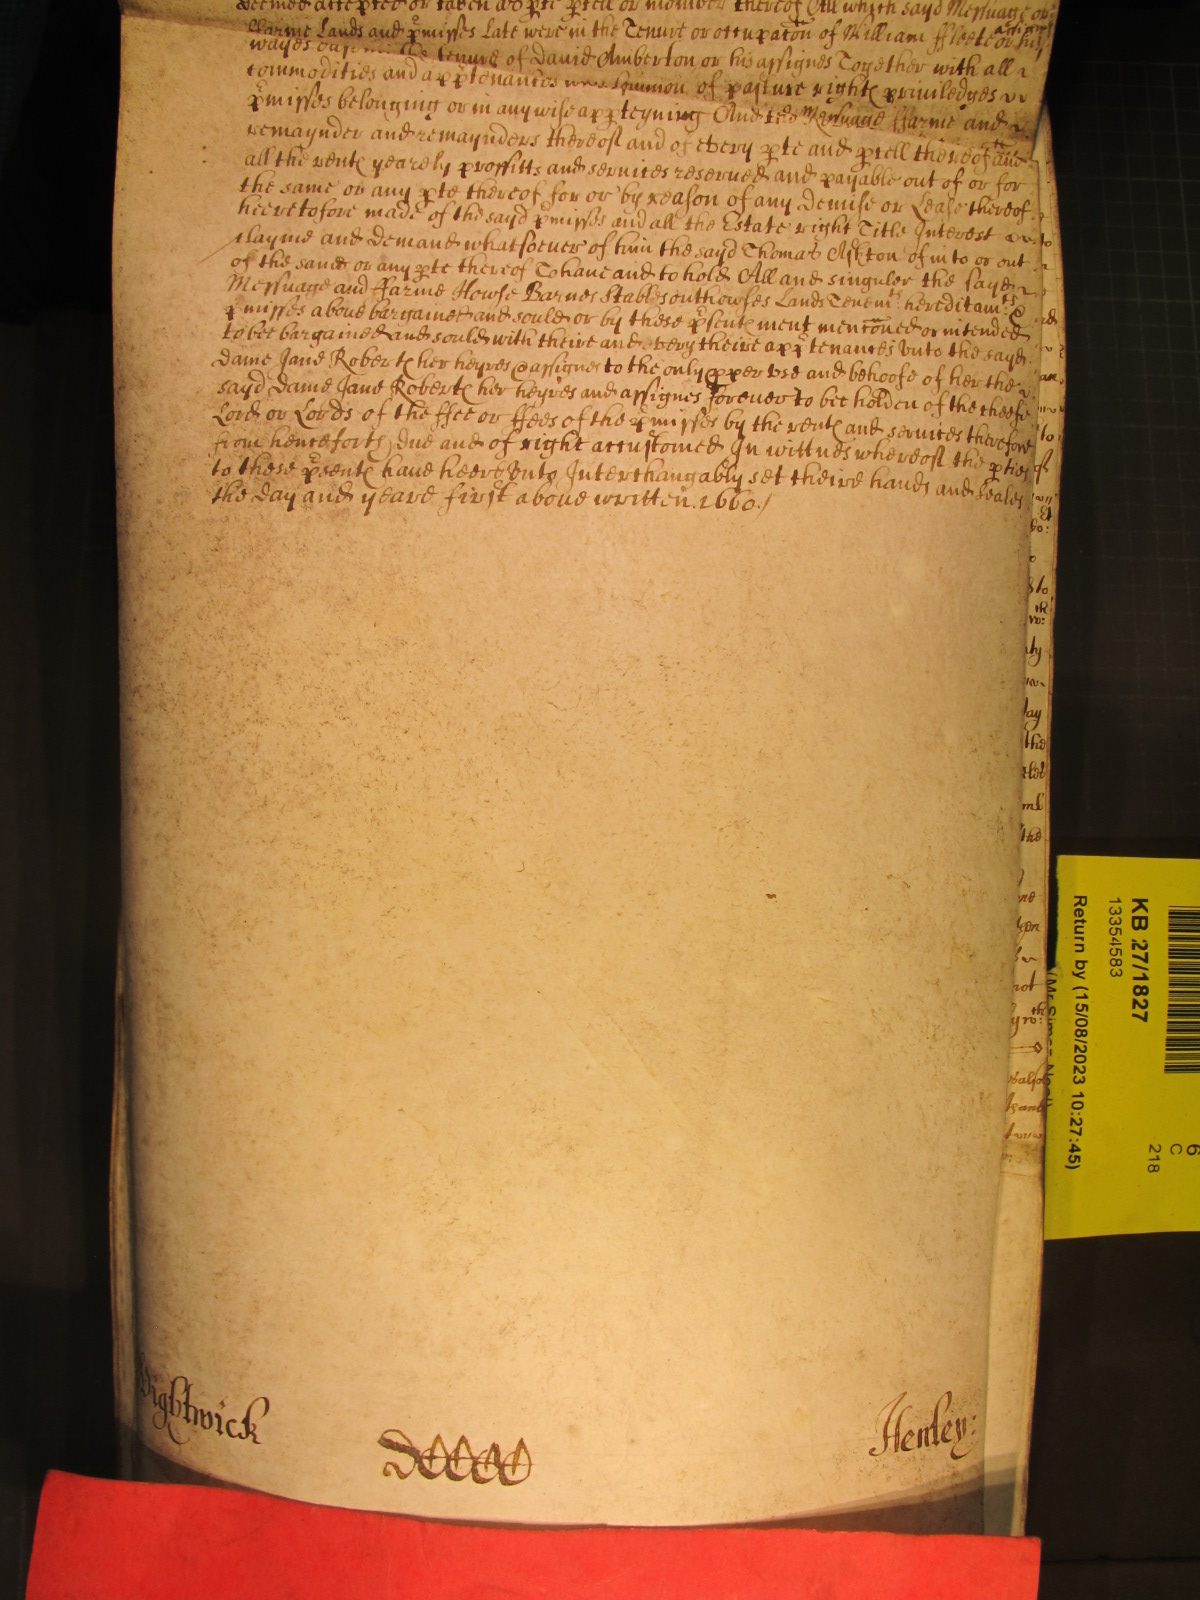 deemed accepted or taken as pte pcell or member thereof All which sayd Messuage or
ffarme Lands and pmisses Late were in the Tenure or occupacon of William ffleete or his
assignes
wayes tenure of David Amberton or his assignes Together with all
commodities and apptenances Common of pasture right priviledges
pmisses belonging or in any wise appteyning And the Messuage ffarme and
remaynder and remaynders thereof and of every pte and pcell thereof and
all the rent yearely proffitts and services reserved and payable out of or for
the same or any pte thereof for or by reason of any Demise or Lease thereof
heeretofore made of the sayd pmisses and all the Estate right Title Interest
clayme and Demand whatsoever of him the sayd Thomas Ashton of in to or out
of the same or any pte thereof To have and to hold All and singuler the sayd
Messuage and ffarme Howse Barnes Stables outhowses Lands Tenemts hereditamts &
pmisses above bargained and sould or by these psent ment menconed or intended
to bee bargained and sould with theire and every theire apptenances unto the sayd
dame Jane Robert her heyres & assignes to the only pper use and behoofe of her the
sayd Dame Jane Robert her heyres and assignes forever to bee holden of the cheefe
Lord or Lords of the ffee or ffees of the pmisses by the rent and services therefore
from henceforth due and of right accustomed In wittnes whereof the pties
to these psent have heereunto Interchangably set theire hands and Seales
the day and yeare first above written. 1660./
Wightwick
Henley:
KB 27/1827
13354583
Return by (15/08/2023 10:27:45)
6
C
218